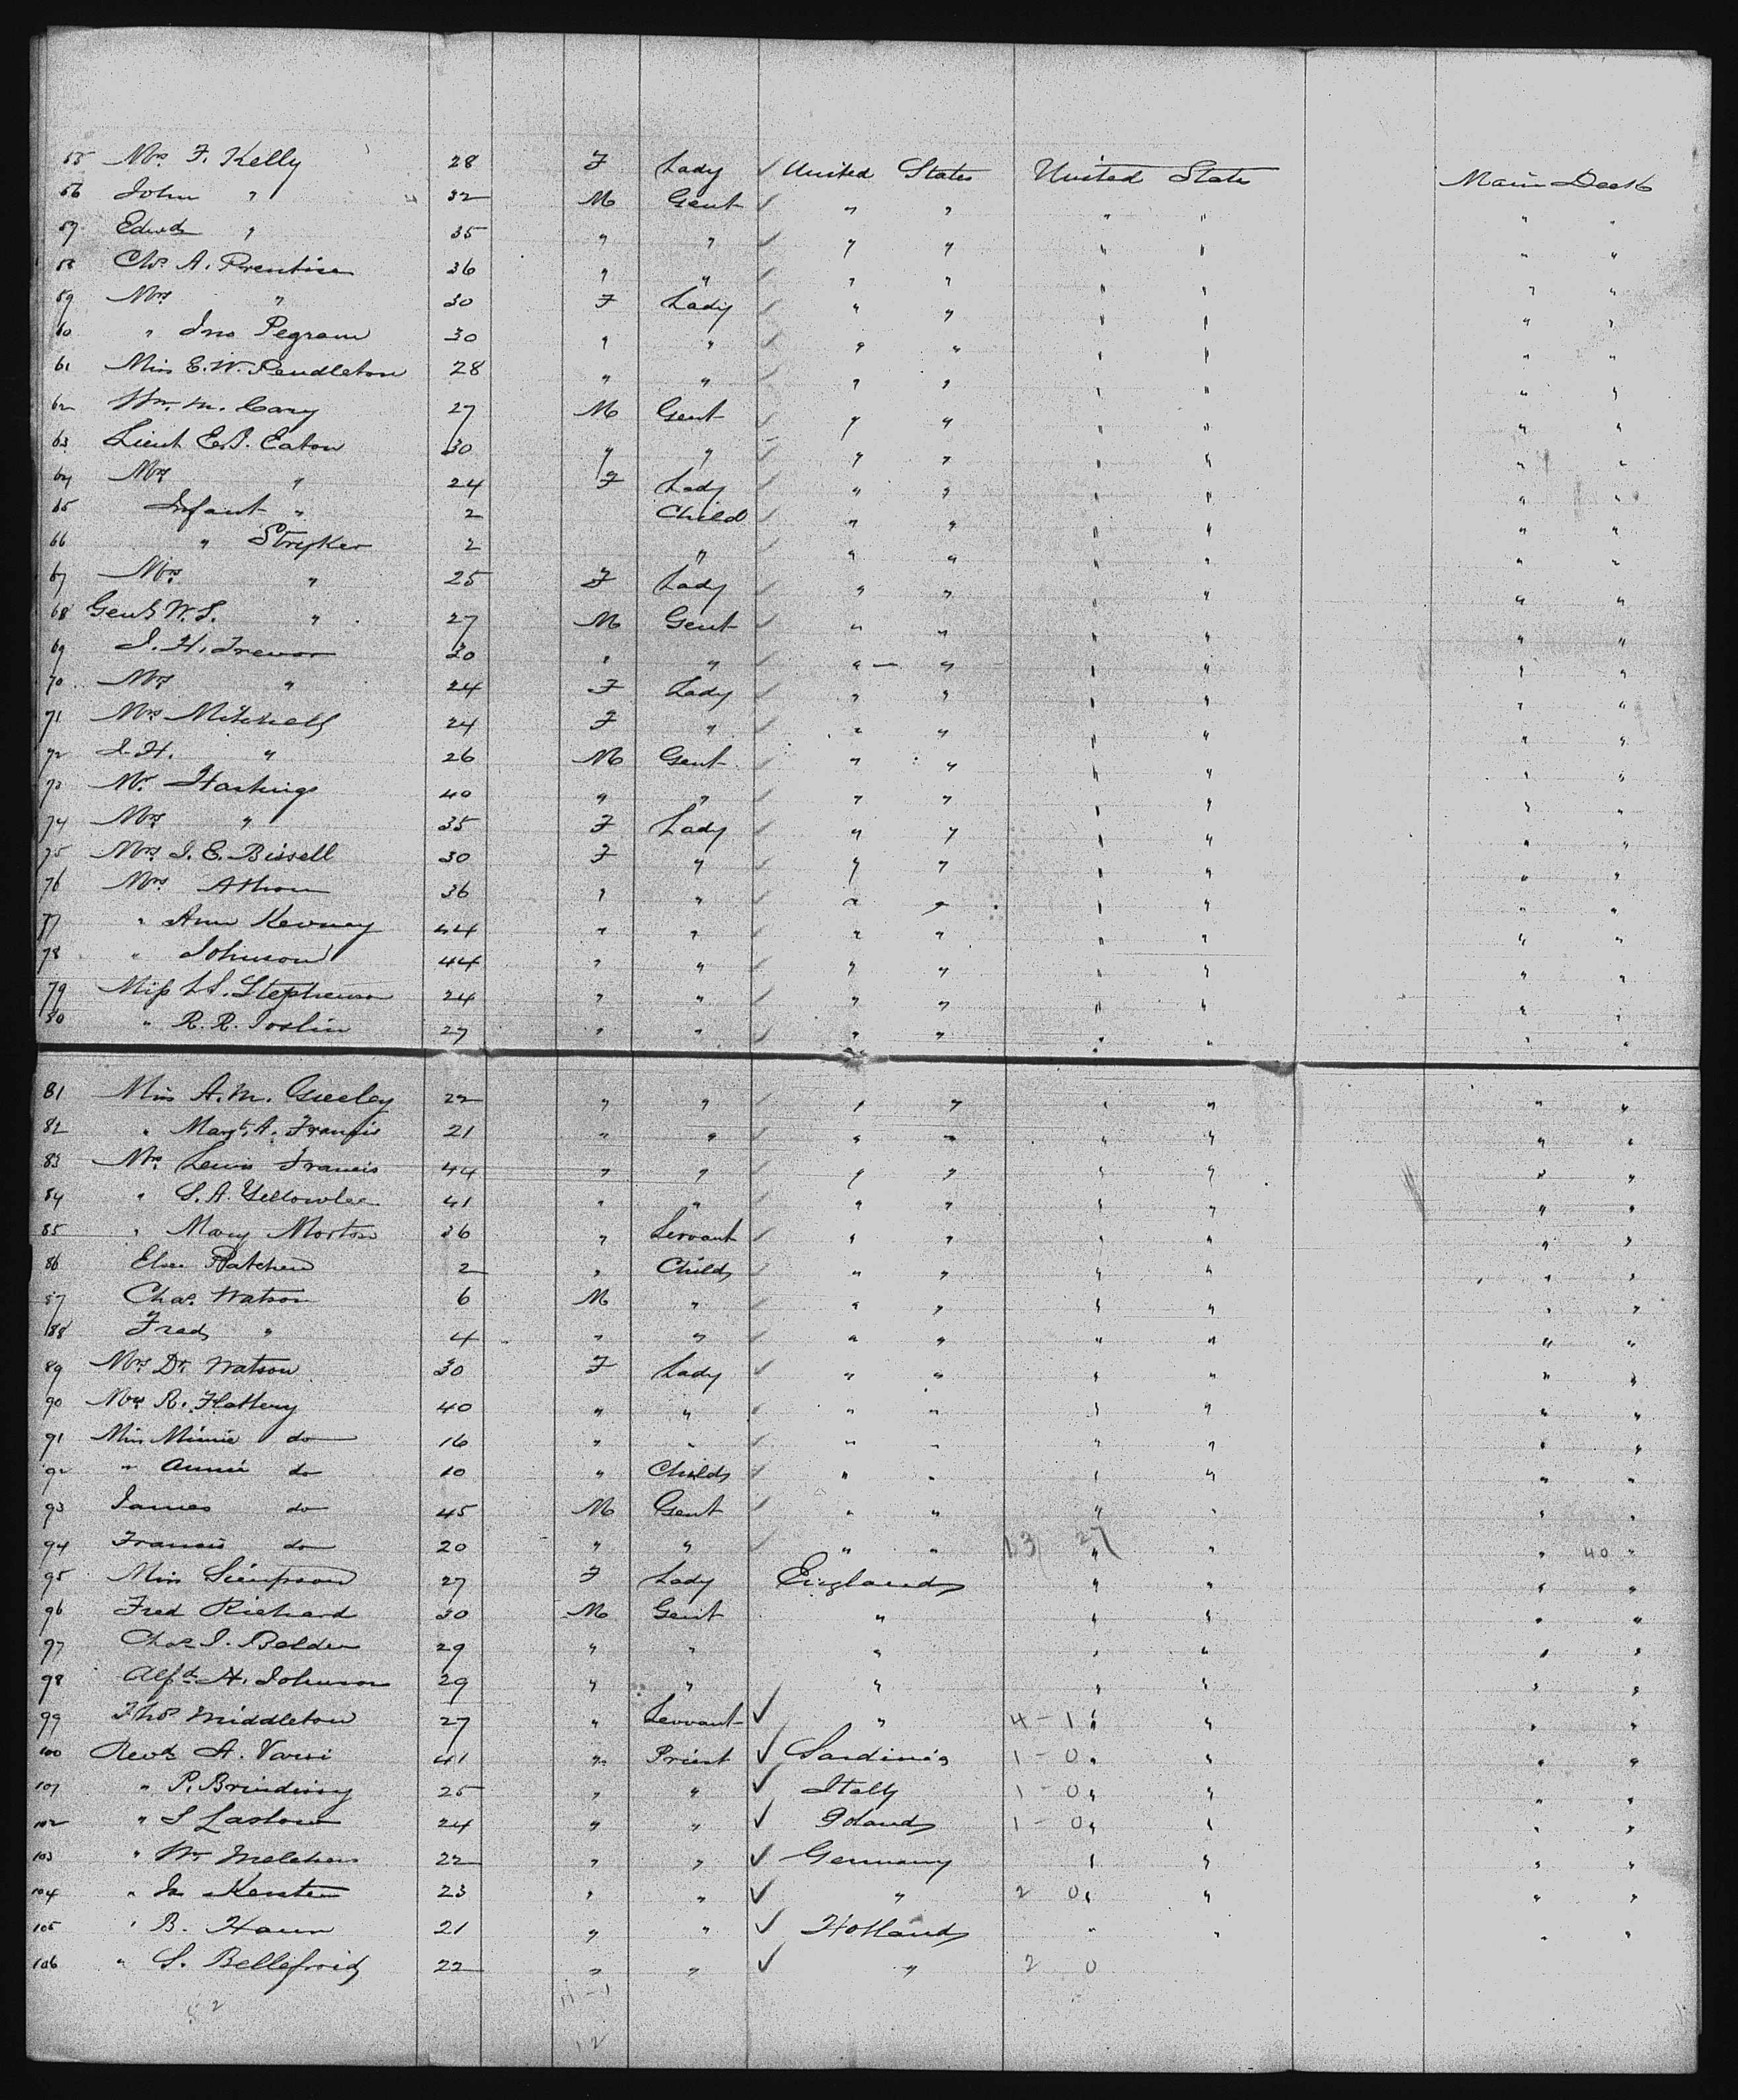 55 Mrs. F. Kelly 28 F Lady ✓ United States United State Main Deck
56 John " 32 M Gent ✓ " " " " " "
57 Edwd " 35 " " ✓ " " " " " "
58 Chs. A. Prentice 36 " " ✓ " " " " " "
59 Mrs " 30 F Lady ✓ " " " " " "
60 " Jno Pegram 30 " " ✓ " " " " " "
61 Miss E. W. Pendleton 28 " " ✓ " " " " " "
62 Wm. M. Cary 27 M Gent ✓ " " " " " "
63 Lieut Eaton 30 " " ✓ " " " " " "
64 Mrs " 24 F Lady ✓ " " " " " "
65 Infant " 2 Child ✓ " " " " " "
66 " Stryker 2 " ✓ " " " " " "
67 Mrs. " 25 F Lady ✓ " " " " " "
68 Genl W. S. " 27 M Gent ✓ " " " " " "
69 J. H. Trevor 30 " " ✓ " " " " " "
70 Mrs " 24 F Lady ✓ " " " " " "
71 Mrs Mitchell 24 F " ✓ " " " " " "
72 J. H. " 26 M Gent ✓ " " " " " "
73 Mr. Hastings 40 " " ✓ " " " " " "
74 Mrs " 35 F Lady ✓ " " " " " "
75 Mrs J. E. Bissell 30 F " ✓ " " " " " "
76 Mrs 36 " " ✓ " " " " " "
77 " Ann 44 " " ✓ " " " " " "
78 " Johnson 44 " " ✓ " " " " " "
79 Miss L S. Stephenson 24 " " ✓ " " " " " "
80 " R. R. Joslin 27 " " ✓ " " " " " "
81 Miss A. M. Greeley 22 " " ✓ " " " " " "
82 " Margt. A. Francis 21 " " ✓ " " " " " "
83 Mrs Lewis Francis 44 " " ✓ " " " " " "
84 " S. A. Yellowlee 41 " " ✓ " " " " " "
85 " Mary Morton 36 " Servant ✓ " " " " " "
86 Patchen 2 " Child ✓ " " " " " "
87 Chas. Watson 6 M " ✓ " " " " " "
88 Fred " 4 " " ✓ " " " " " "
89 Mrs Dr. Watson 30 F Lady ✓ " " " " " "
90 Mrs R. Flattery 40 " " ✓ " " " " " "
91 Miss Minnie do 16 " " ✓ " " " " " "
92 " Annie do 10 " Child ✓ " " " " " "
93 James do 45 M Gent ✓ " " " " " "
94 Francis do 20 " " ✓ " " 13 27 " " " 40 "
95 Miss Simpson 27 F Lady England " " " "
96 Fred Richard 30 M Gent " " " " "
97 Chas J. Belden 29 " " " " " " "
98 Alfd. H. Johnson 29 " " " " " " "
99 Thos Middleton 27 " Servant ✓ " 4 - 1 " " " "
100 Revd A. Varsi 41 " Priest ✓ Sardinia 1 - 0 " " " "
101 " P. 25 " " ✓ Italy 1 - 0 " " " "
102 " S 24 " " ✓ Poland 1 - 0 " " " "
103 " Wm Melchers 22 " " ✓ Germany " " " "
104 " Kersten 23 " " ✓ " 2 0 " " " "
105 " B. Haun 21 " " ✓ Holland " " " "
106 " S. Bellefroid 22 " " ✓ " 2 0
52 11 - 1
12